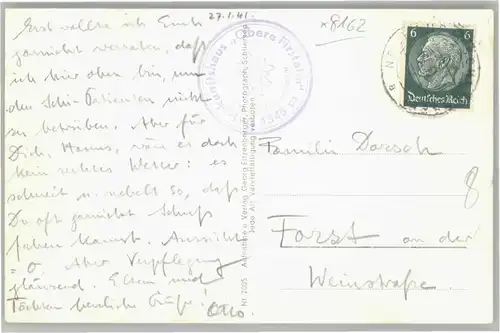 27.1.41.
Erst wollte ich Euch
garnicht verraten, daß
ich hier oben bin, um
den Schi-Patienten nicht
zu betreiben. Aber für
Dich, Hanns, wäre es doch
kein rechtes Wetter: es
schneit u. nebelt so, daß
Du oft garnicht Schuß
fahren kannst. Aussicht
= 0. Aber Verpflegung
glänzend. Eltern und
Töchtern herzliche Grüße!
Otto
Nr. 2005 Aufnahme u. Verlag Georg Fitzenberger, Photograph, Schliersee
Jede Art Vervielfältigung verboten
"Obere Firstalm"
x8162
6 6
Deutsches Reich
Familie Dorsch
8
Forst an der
Weinstraße.